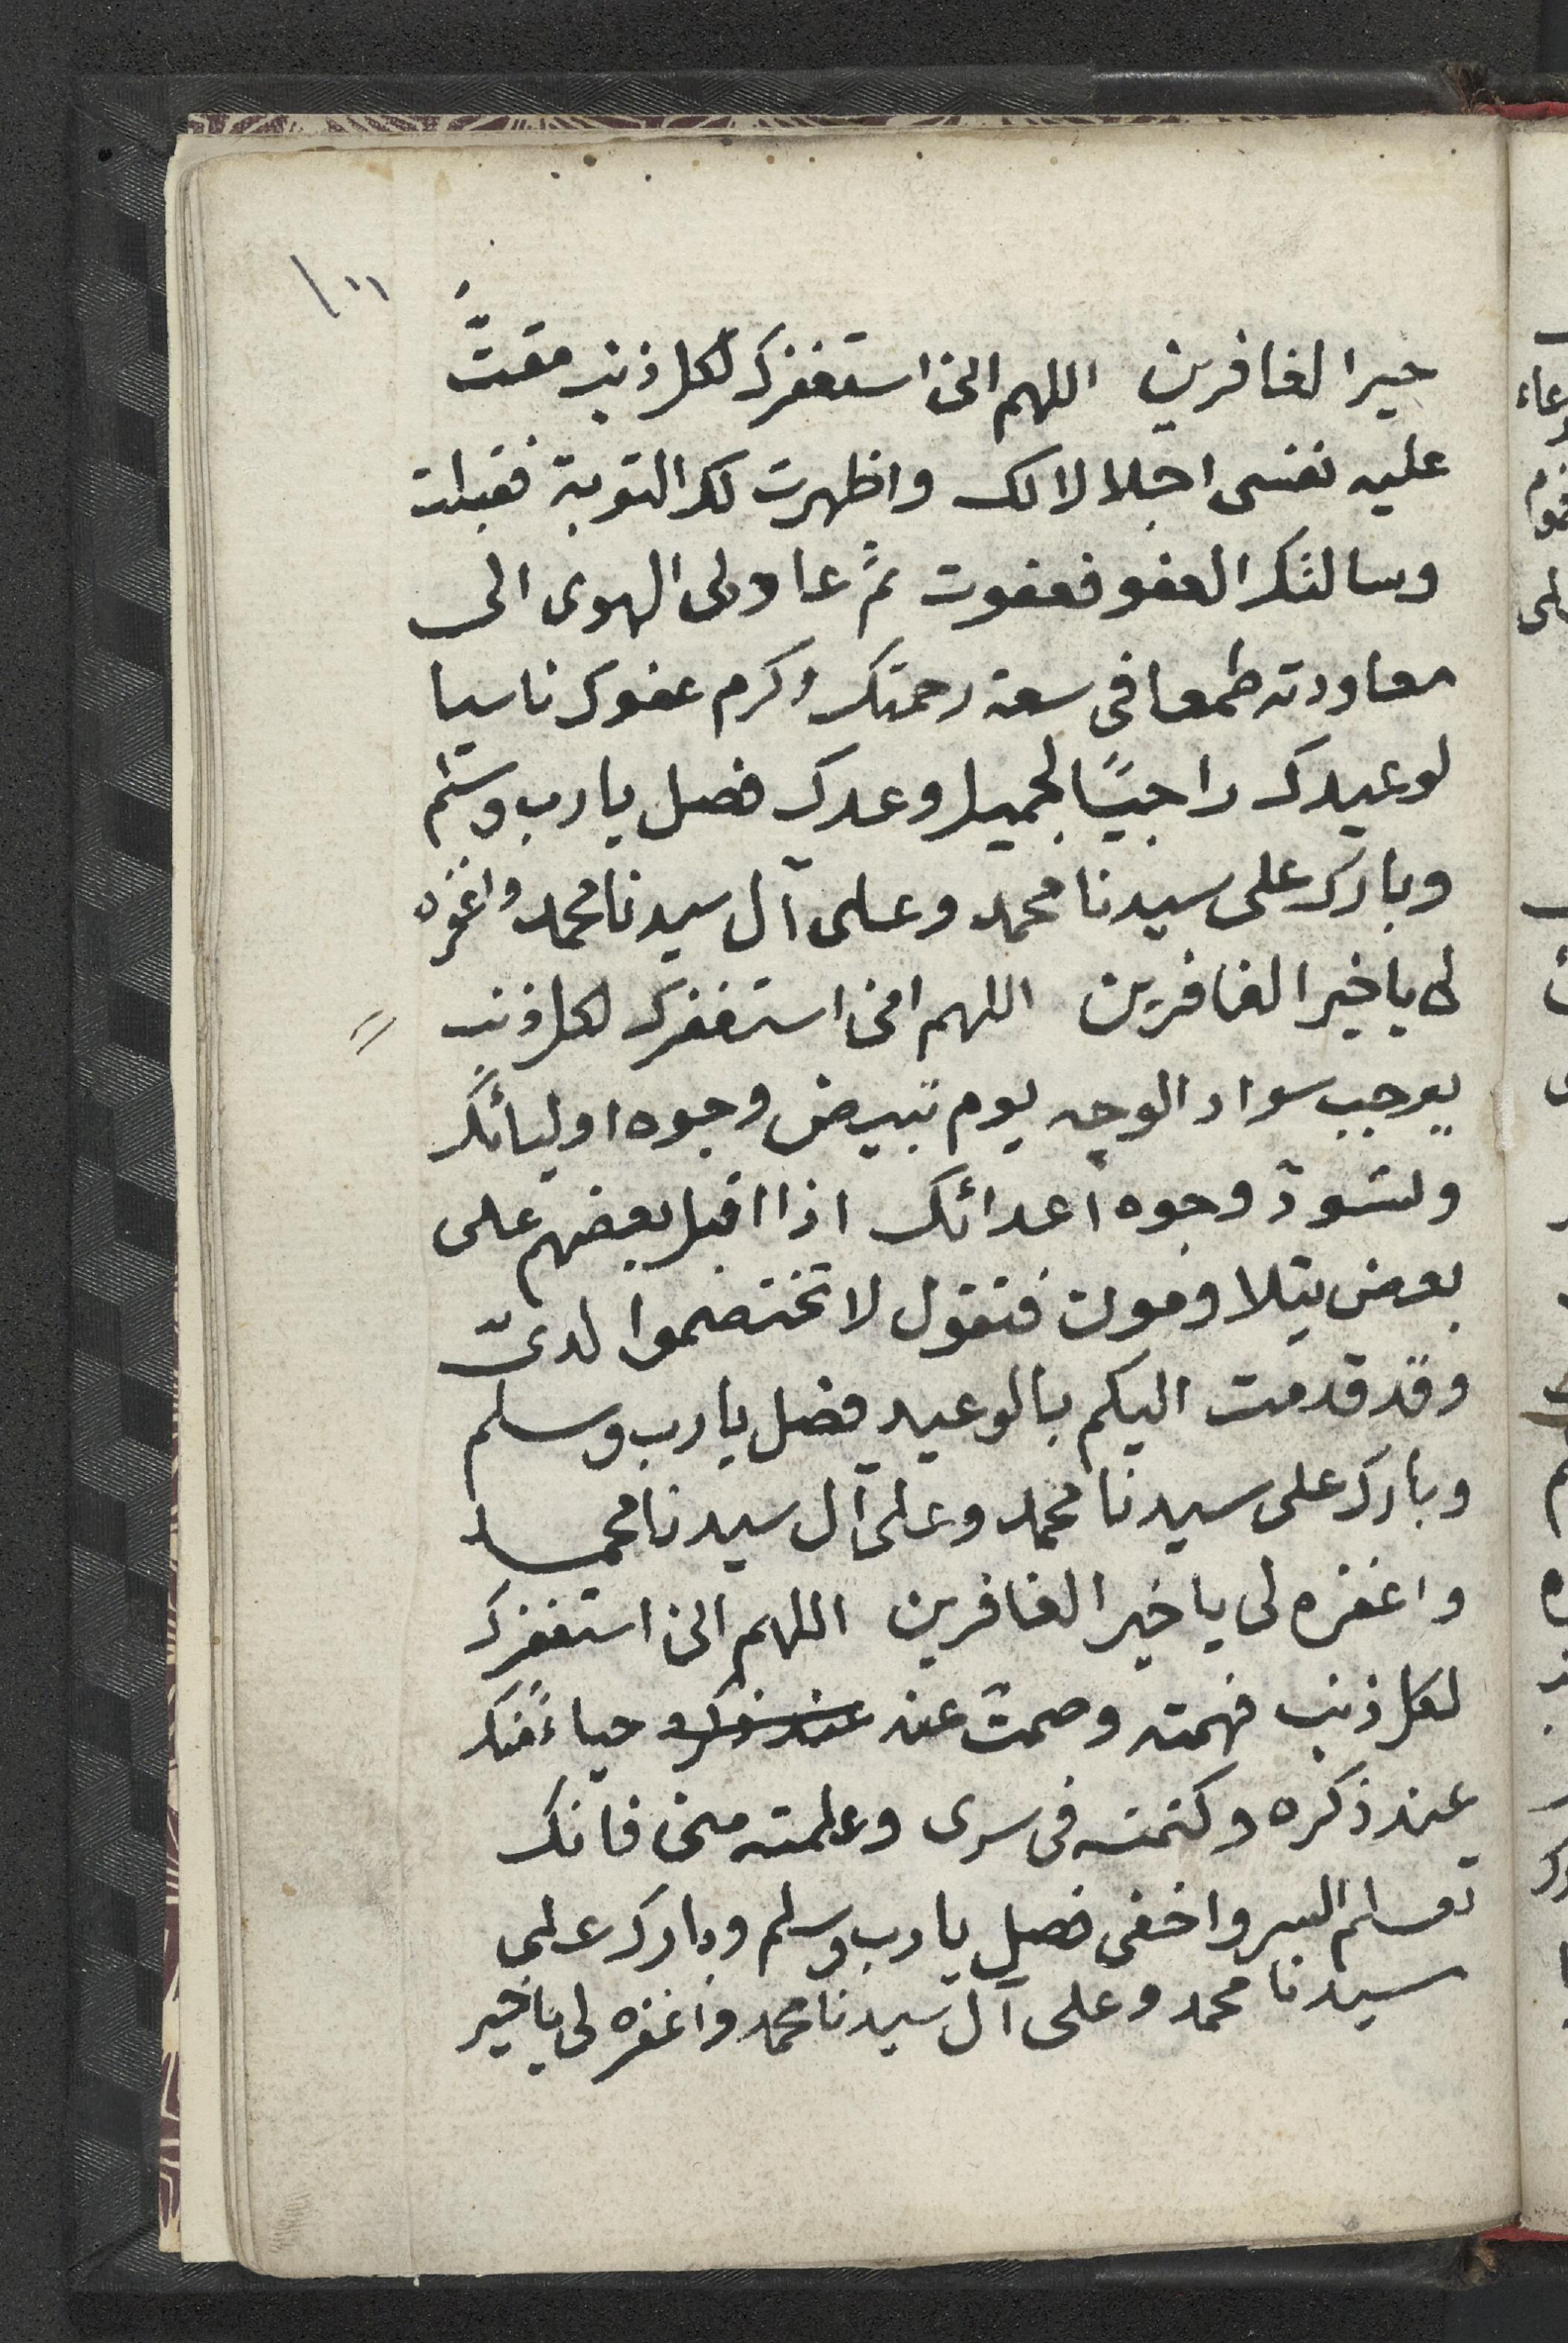 خير الغافرين اللهم انى استغفرك لكل ذنب مقتّ
عليه نفسى اجلالا لك واظهرت لك التوبة فقبلت
وسالتك العفو فعفوت ثم عاودنى الهوى الى
معاودته طمعا فى سعة رحمتك وكرم عفوك ناسيا
لوعيدك راجيًا لجميل وعدك فصل يا رب وسلم
وبارك على سيدنا محمد وعلى آل سيدنا محمد واغفره
لى يا خير الغافرين اللهم انى استغفرك لكل ذنب
يوجب سواد الوجه يوم تبيض وجوه اوليائك
وتسودّ وجوه اعدائك اذا اقبل بعضهم على
بعض يتلاومون فتقول لا تختصموا لدىّ
وقد قدمت اليكم بالوعيد فصل يا رب وسلم
وبارك على سيدنا محمد وعلى آل سيدنا محمد
واغفره لى يا خير الغافرين اللهم انى استغفرك
لكل ذنب فهمته وصمتّ عنه عند ذكره حياءً منك
عند ذكره وكتمته فى سرى وعلمته منى فانك
تعلم السر واخفى فصل يا رب وسلم وبارك على
سيدنا محمد وعلى آل سيدنا محمد واغفره لى يا خير